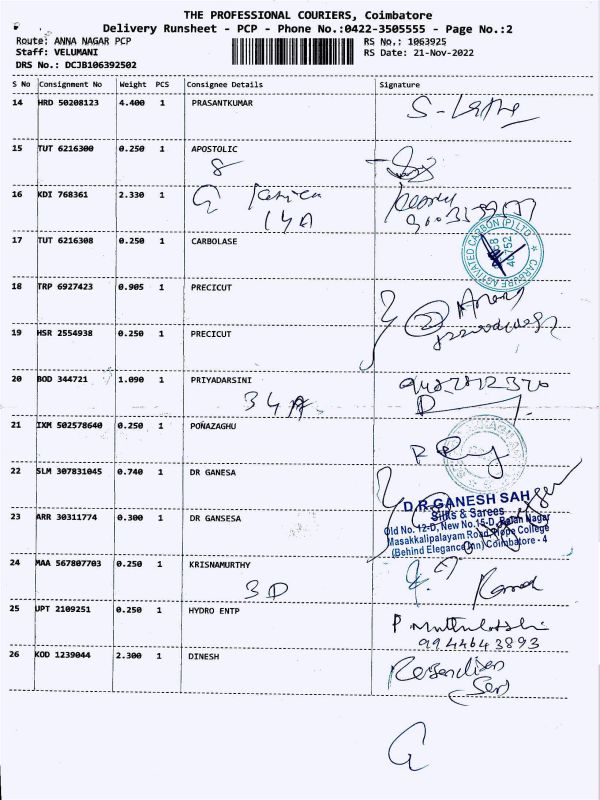 THE PROFESSIONAL COURIERS, Coimbatore
Delivery Runsheet - PCP - Phone No.:0422-3505555 - Page No.:2
Route: ANNA NAGAR PCP
Staff: VELUMANI
DRS No.: DCJB106392502
RS No.: 1063925
RS Date: 21-Nov-2022
S No Consignment No Weight PCS Consignee Details Signature
14 HRD 50208123 4.400 1 PRASANTKUMAR
15 TUT 6216300 0.250 1 APOSTOLIC
8
16 KDI 768361 2.330 1
14A
17 TUT 6216308 0.250 1 CARBOLASE
CARBURE ACTIVATED CARBON (P) LTD
18 TRP 6927423 0.905 1 PRECICUT
19 HSR 2554938 0.250 1 PRECICUT
20 BOD 344721 1.090 1 PRIYADARSINI
34A
21 IXM 502578640 0.250 1 POÑAZAGHU
22 SLM 307831045 0.740 1 DR GANESA
D.R.GANESH SAH
Silks & Sarees
Old No. 12-D, New No.15-D, Balan Nagar
Masakkalipalayam Road, Hope College
(Behind Elegance Inn) Coimbatore - 4
23 ARR 30311774 0.300 1 DR GANSESA
24 MAA 567807703 0.250 1 KRISNAMURTHY
3D
25 UPT 2109251 0.250 1 HYDRO ENTP
9944643893
26 KOD 1239044 2.300 1 DINESH